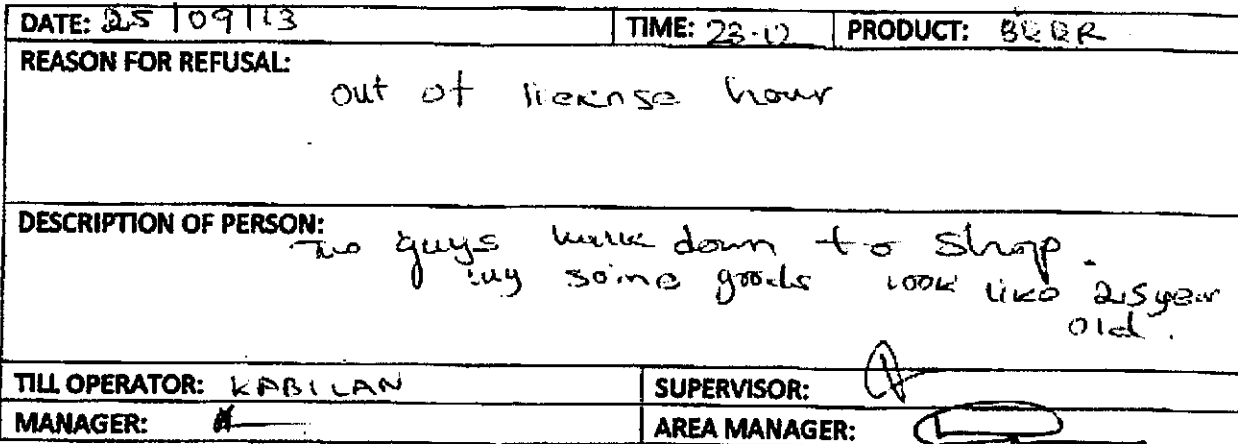 DATE: 25/09/13 TIME: 23.12 PRODUCT: BEER
REASON FOR REFUSAL:
out of license hour
DESCRIPTION OF PERSON:
Two guys walk down to shop.
buy some goods look like 25 year
old.
TILL OPERATOR: KABILAN SUPERVISOR:
MANAGER: AREA MANAGER: